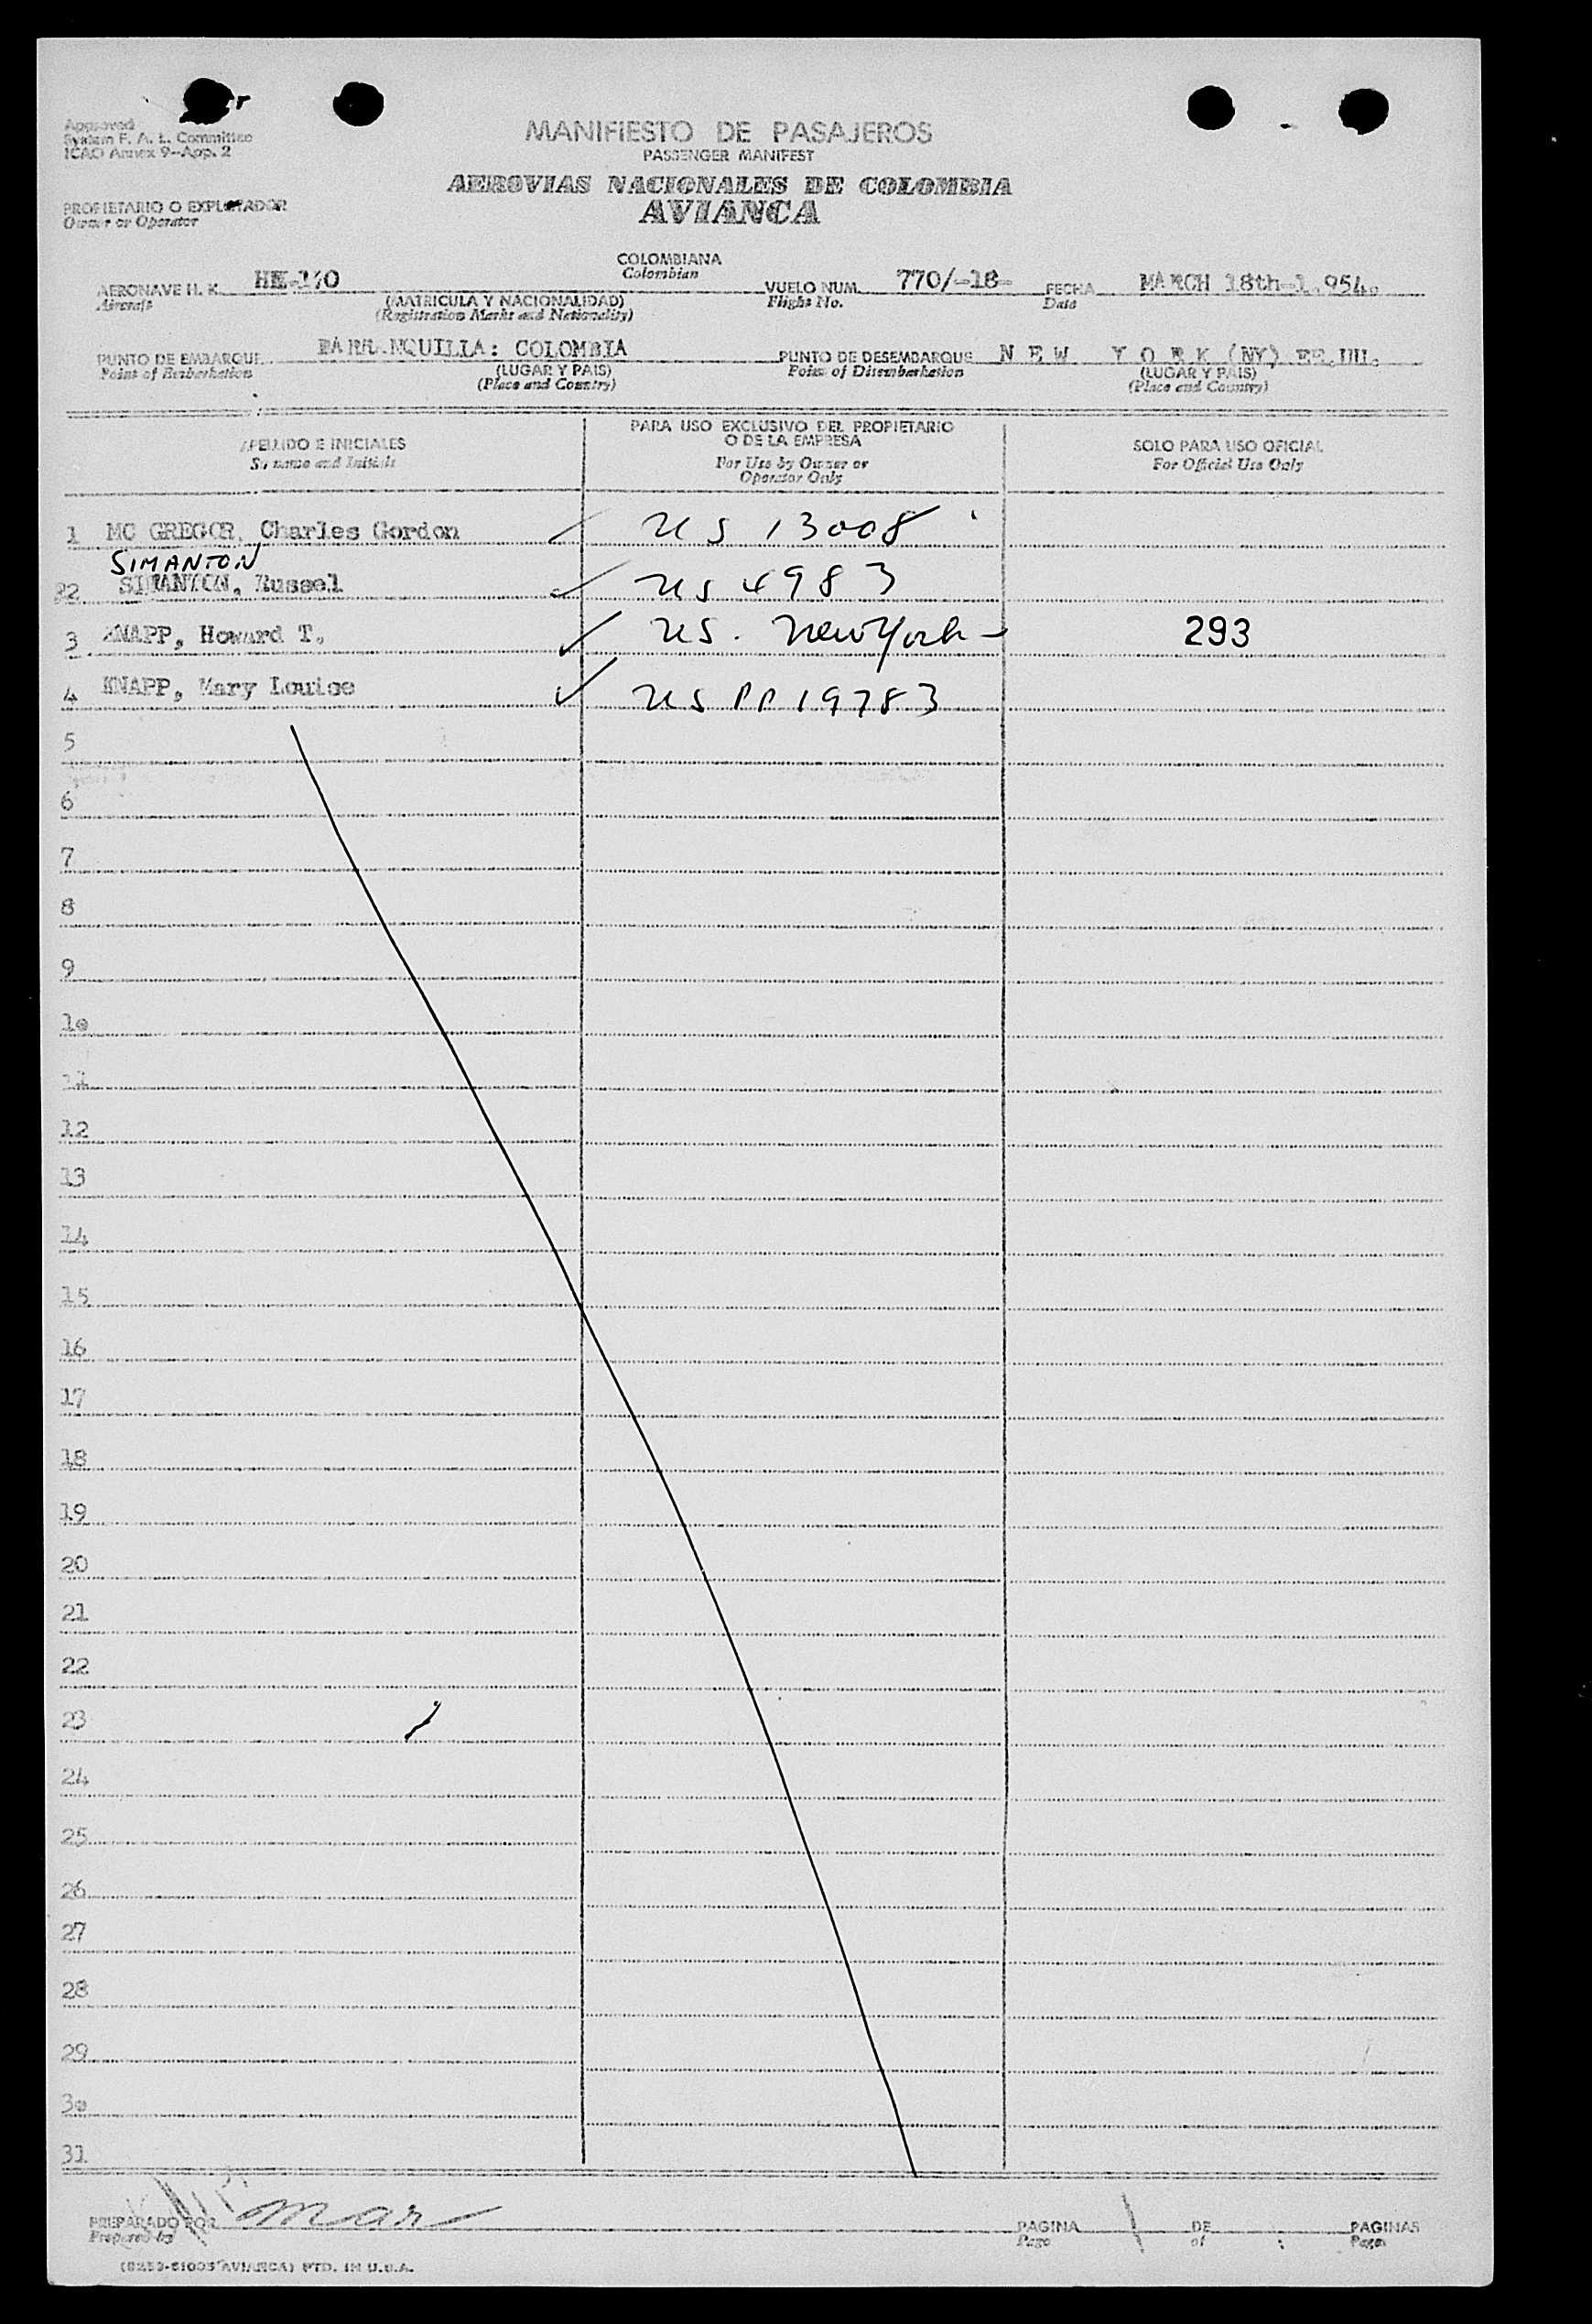 Approved
System F. A. L. Committee
ICAO Annex 9-App. 2
MANIFIESTO DE PASAJEROS
PASSENGER MANIFEST
AEROVIAS NACIONALES DE COLOMBIA
AVIANCA
PROPIETARIO O EXPLOTADOR
Owner or Operator
COLOMBIANA
Colombian
AERONAVE H. K. HK-170
Aircraft
(MATRICULA Y NACIONALIDAD)
(Registration Marks and Nationality)
VUELO NUM. 770/-18-
Flight No.
FECHA MARCH 18th-1.954.
Date
PUNTO DE EMBARQUE BARRANQUILLA: COLOMBIA
Point of Embarkation
(LUGAR Y PAIS)
(Place and Country)
PUNTO DE DESEMBARQUE N E W Y O R K (NY) EE.UU.
Point of Disembarkation
(LUGAR Y PAIS)
(Place and Country)
APELLIDO E INICIALES
Surname and Initials
PARA USO EXCLUSIVO DEL PROPIETARIO
O DE LA EMPRESA
For Use by Owner or
Operator Only
SOLO PARA USO OFICIAL
For Official Use Only
1 MC GREGOR, Charles Gordon US 13008
SIMANTON
2 SIMANTON, Russel US 4983
3 KNAPP, Howard T. US. New York 293
4 KNAPP, Mary Louise US PP 19783
5
6
7
8
9
10
11
12
13
14
15
16
17
18
19
20
21
22
23
24
25
26
27
28
29
30
31
PREPARADO POR
Prepared by
PAGINA 1 DE PAGINAS
Page of Pages
AVIANCA) PTD. IN U.S.A.